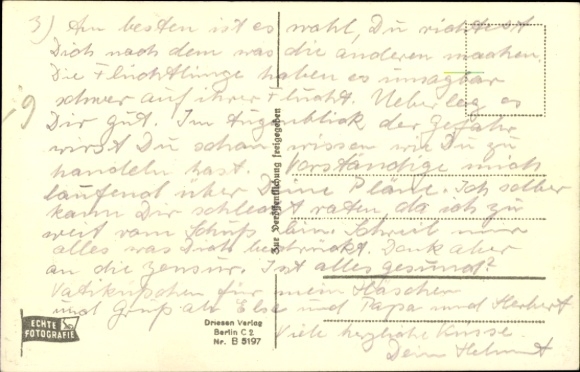 3) Am besten ist es wohl, Du richtest
Dich nach dem was die anderen machen.
Die Flüchtlinge haben es unsagbar
schwer auf ihrer Flucht. Ueberleg es
Dir gut. Im Augenblick der Gefahr
wirst Du schon wissen wie Du zu
handeln hast. Verständige mich
laufend über Deine Pläne. Ich selber
kann Dir schlecht raten da ich zu
weit vom Schuß bin. Schreib mir
alles was Dich bedrückt. Denk aber
an die Zensur. Ist alles gesund?
für mein Häschen
und Gruß an Else und Papa und Herbert
Viele herzliche Küsse
Dein Helmut
Zur Veröffentlichung freigegeben
ECHTE
FOTOGRAFIE
Driesen Verlag
Berlin C 2
Nr. B 5197